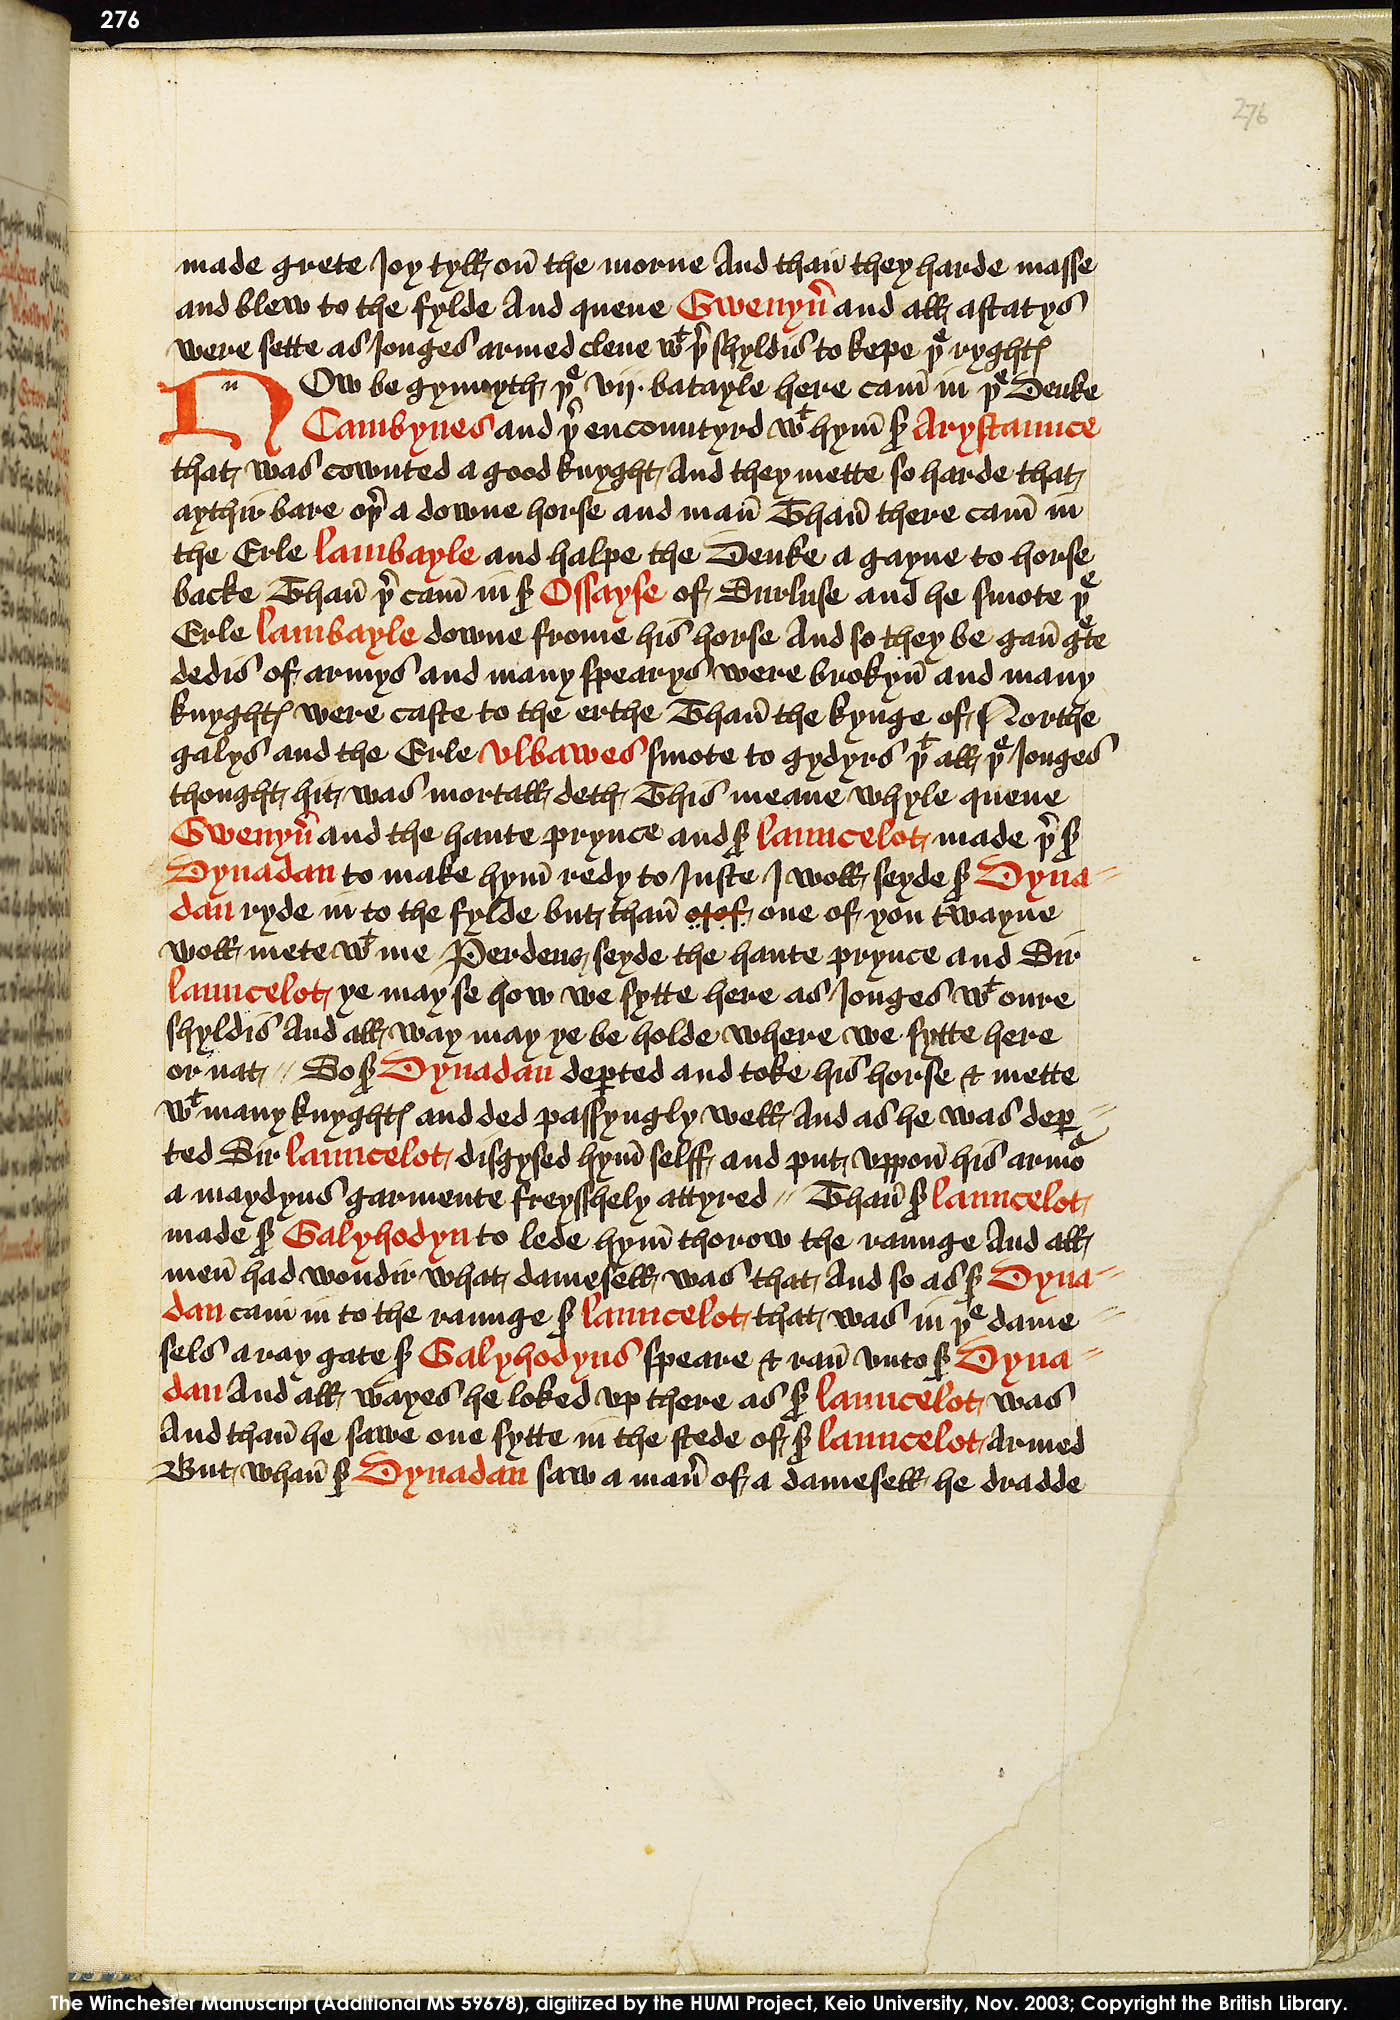 276
276
made grete Joy tyll on̄ the morne And than̄ they harde masse
and blew to the fylde And quene Gwenyu͛ and all astatys
were sette as Jouges armed clene wᵗ þʳ shyldis to kepe þᵉ ryghtꝭ
n Ow be gynnyth þᵉ vij. batayle here cam̄ in þᵉ Deuke
Cambynes and þʳ encountyrd wᵗ hym̄ sʳ Arystaunce
that was cownted a good knyght And they mette so harde that
aythir bare oþʳ a downe horse and man̄ Than̄ there cam̄ in
the Erle lambayle and halpe the Deuke a gayne to horse
backe Than̄ þʳ cam̄ in sʳ Ossayse of Surluse and he smote þᵉ
Erle lambayle downe frome his horse And so they be gan̄ gᵉte
dedis of armys and many spearys were brokyn̄ and many
knyghtꝭ were caste to the erthe Than̄ the kynge of Northe
galys and the Erle vlbawes smote to gydyrs þᵗ all þᵉ Jouges
thought hit was mortall deth This meane whyle quene
Gwenyu͛ and the haute prynce and sʳ launcelot made þʳ sʳ
Dynadan to make hym̄ redy to Juste I woll seyde sʳ Dyna⸗
dan ryde in to the fylde but than̄ one of you twayne
woll mete wᵗ me Perdeus seyde the haute prynce and Sir
launcelot ye may se how we sytte here as Jouges wᵗ oure
shyldis And all way may ye be holde where we sytte here
or nat // So sʳ Dynadan deꝑted and toke his horse & mette
wᵗ many knyghtꝭ and ded passyngly well And as he was deꝑ⸗
ted Sir launcelot disgysed hym̄ selff and put vppon̄ his armoʳ
a maydyns garmente freysshely attyred // Than̄ sʳ launcelot
made sʳ Galyhodyn to lede hym̄ thorow the raunge And all
men̄ had wondir what damesell was that And so as sʳ Dyna⸗
dan cam̄ in to the raunge sʳ launcelot that was in þᵉ dame⸗
sels aray gate sʳ Galyhodyns speare & ran̄ vnto sʳ Dyna⸗
dan And all wayes he loked vp there as sʳ launcelot was
And than̄ he sawe one sytte in the stede of sʳ launcelot Armed
But whan̄ sʳ Dynadan saw a man͛ of a damesell he dradde
The Winchester Manuscript (Additional MS 59678), digitized by the HUMI Project, Keio University, Nov. 2003; Copyright the British Library.